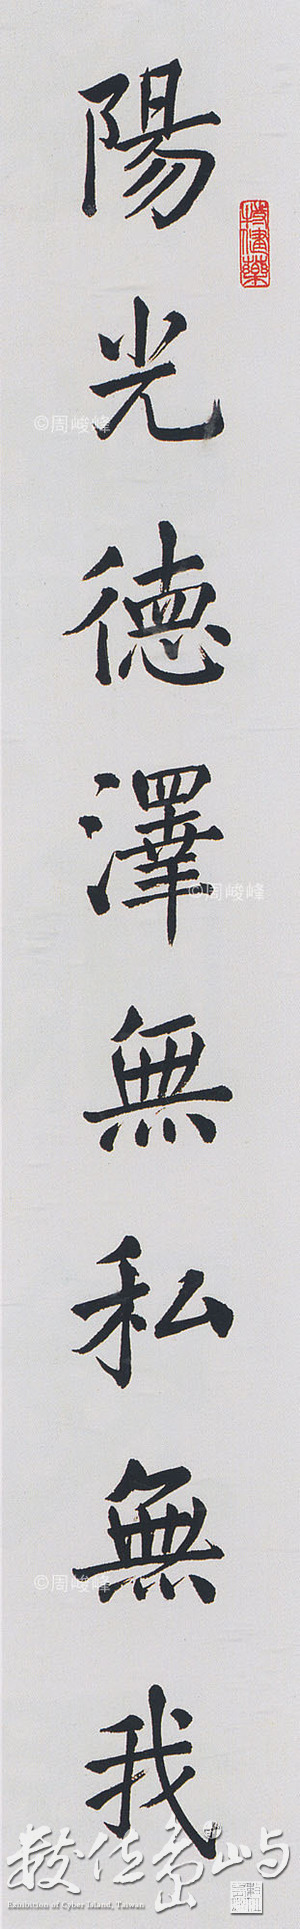 陽光德澤無私無我
©周峻峰
©周峻峰
©周峻峰
數位島嶼
Exhibition of Cyber Island, Taiwan